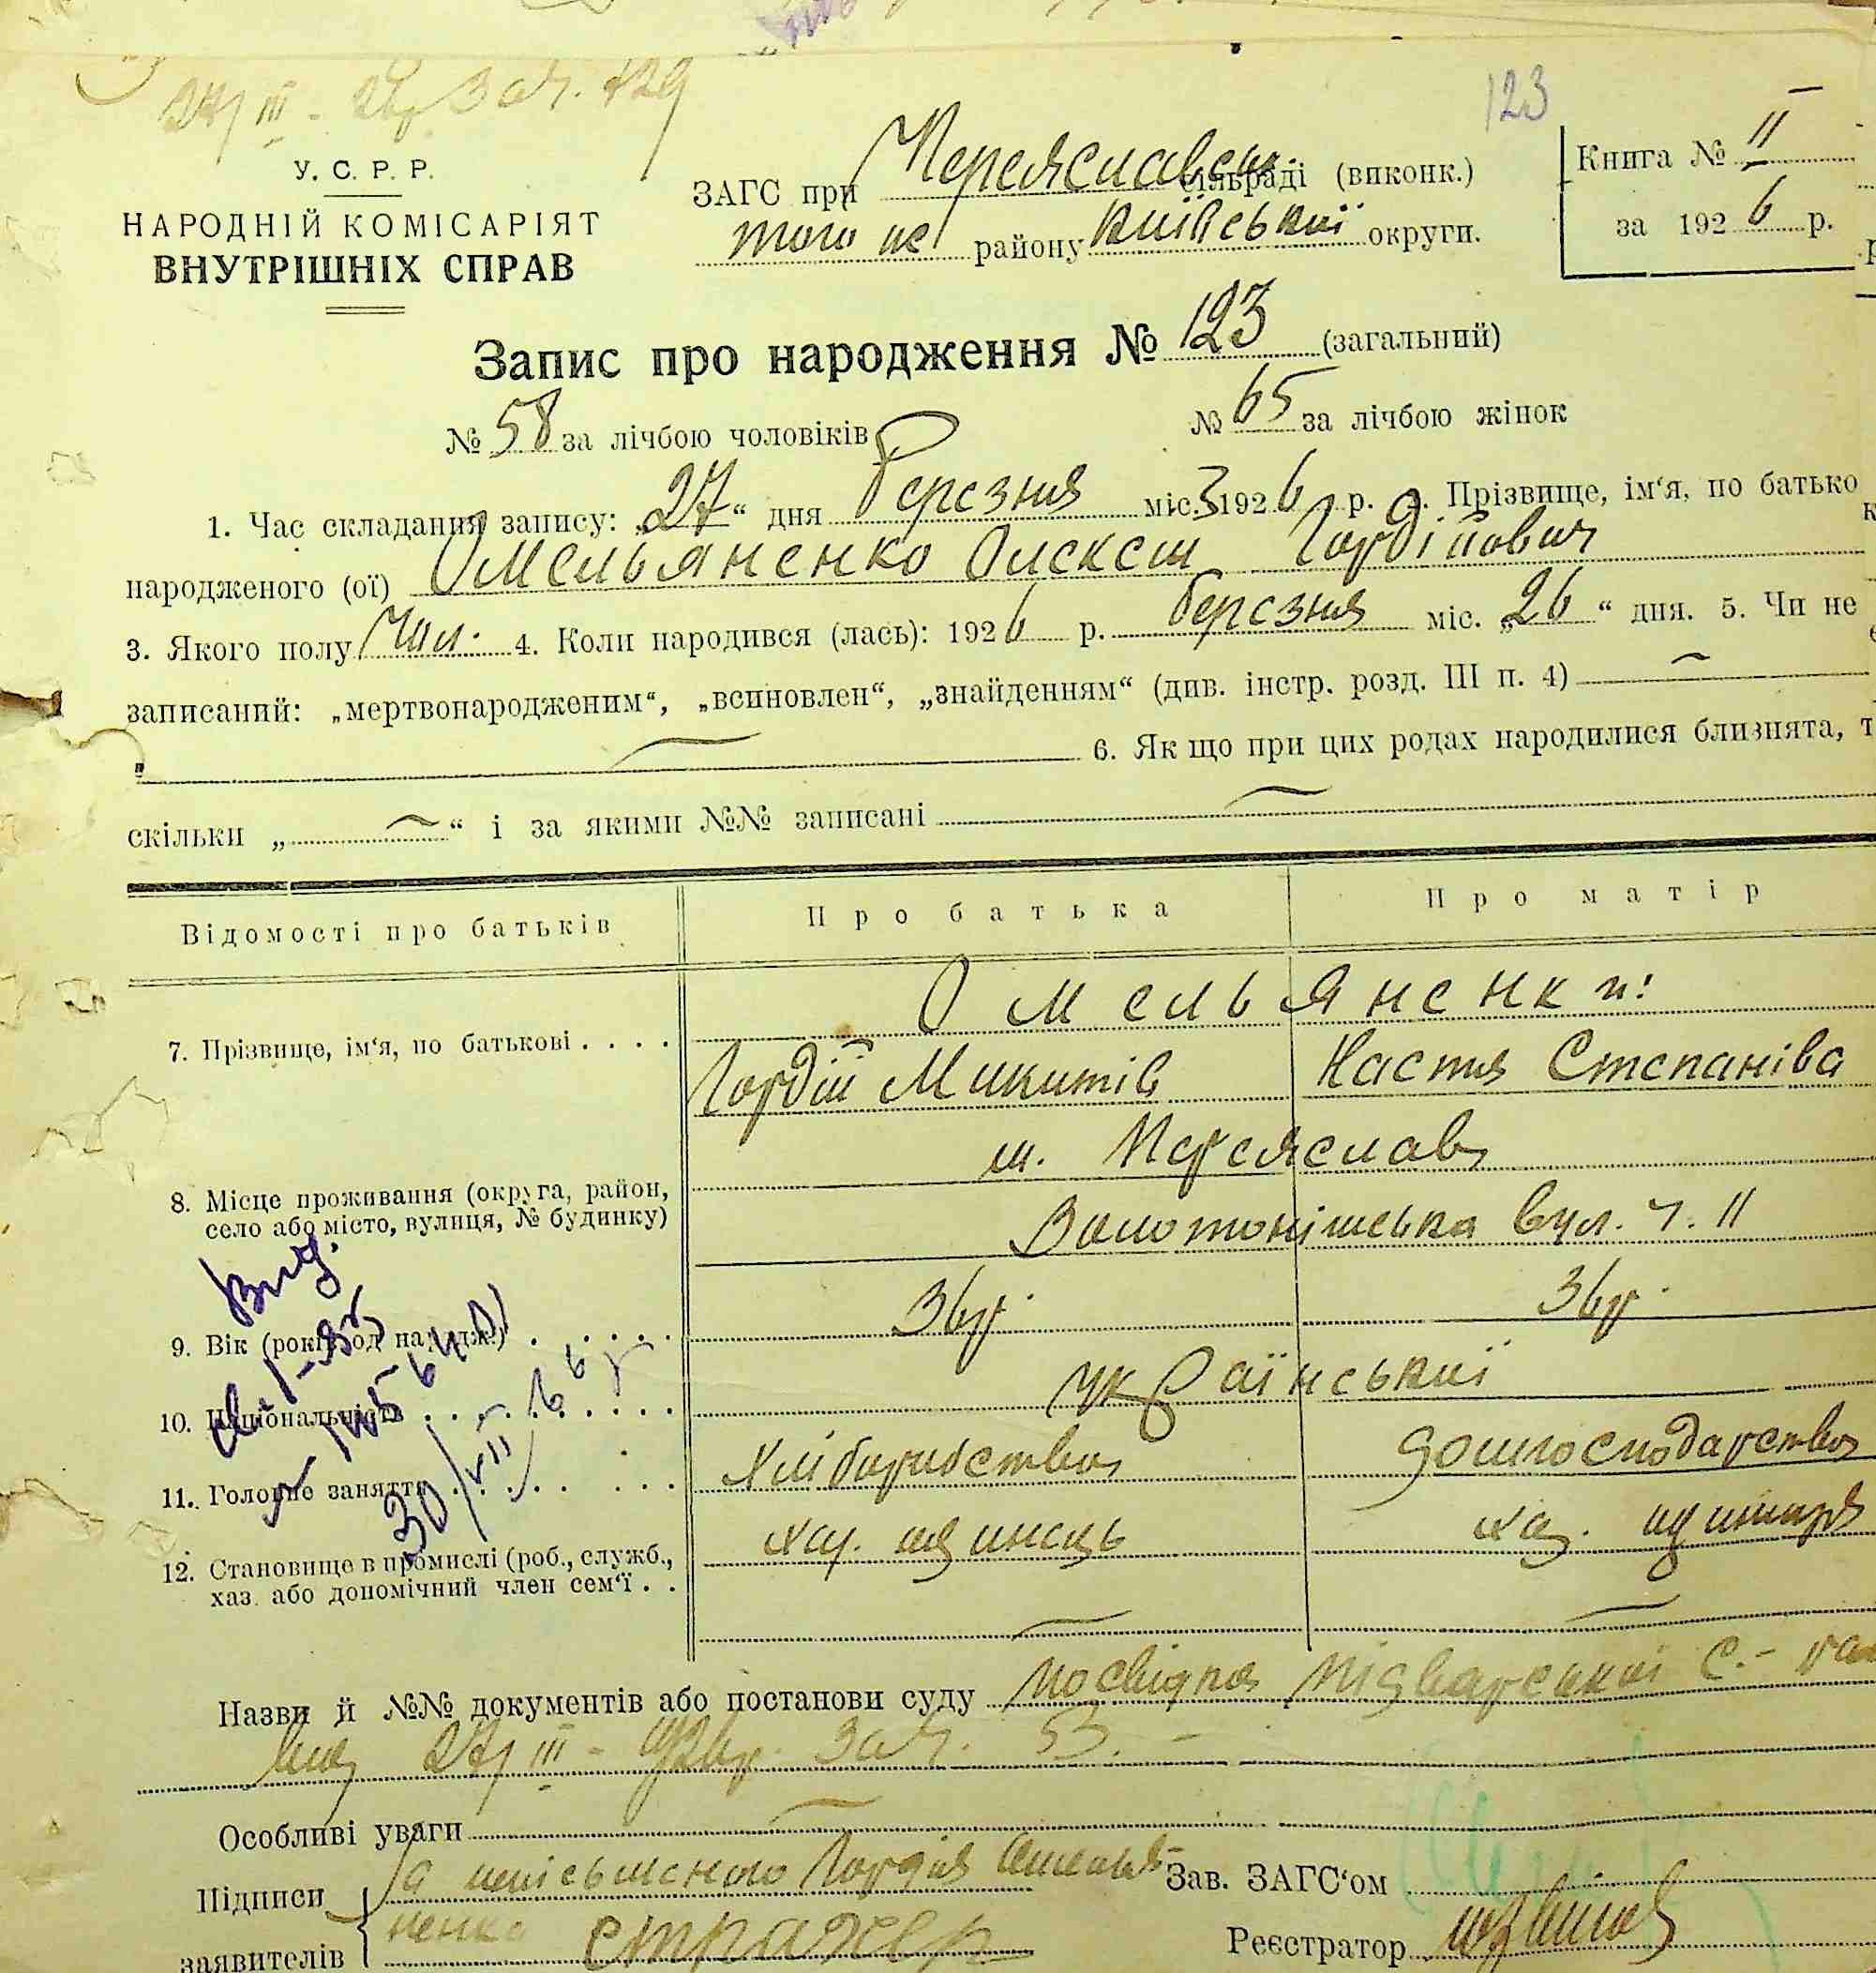 123
У. С. Р. Р.
НАРОДНІЙ КОМІСАРІЯТ
ВНУТРІШНІХ СПРАВ
ЗАГС при Переяславськ сільраді (виконк.)
того же району Київської округи.
Книга № II
за 1926 р.
Запис про народження № 123 (загальний)
№ 58 за лічбою чоловіків № 65 за лічбою жінок
1. Час складання запису: „27“ дня березня міс. 3 1926 р. 2. Прізвище, ім‘я, по батько
народженого (ої) Омельяненко Олексій Гордійович
3. Якого полу Чол. 4. Коли народився (лась): 1926 р. березня міс. „26“ дня. 5. Чи не
записаний: „мертвонародженим“, „всиновлен“, „знайденням“ (див. інстр. розд. III п. 4)
6. Як що при цих родах народилися близнята, т
скільки „ “ і за якими №№ записані
Відомості про батьків Про батька Про матір
Омельяненки:
7. Прізвище, ім‘я, по батькові . . . . Гордій Микитів Настя Степаніва
м. Переяслав
8. Місце проживання (округа, район,
село або місто, вулиця, № будинку)
Золотонішська вул. ч. 11
9. Вік (років од народж.) 36 р. 36 р.
10. Національність Української
11. Головне заняття Хліборобство Домгосподарство
12. Становище в промислі (роб., служб.,
хаз. або допомічний член сем‘ї . .
Назви й №№ документів або постанови суду Посвідка Підварської С.-
від 27/III - 26 р. за ч. 53.
Особливі уваги
Підписи
заявителів
За неписьменного Гордія Омелья-
ненка
Зав. ЗАГС‘ом
Реєстратор